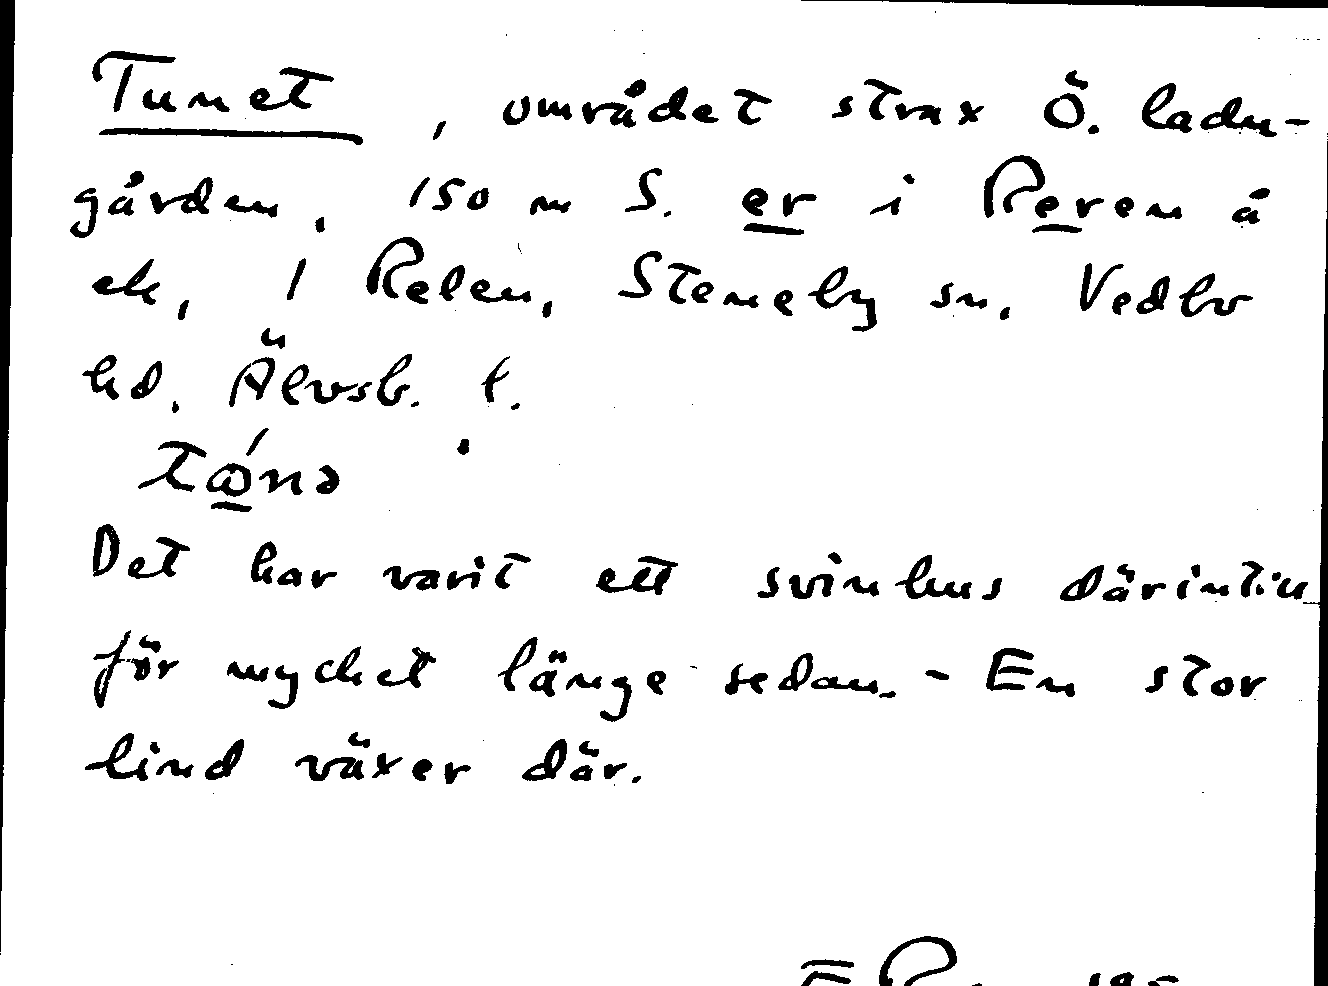 Tunet, området strax Ö. ladu-
gården, 150 m S. er i Reren å
ek, 1 Relen, Steneby sn, Vedbo
hd. Älvsb. l.
Det har varit ett svinhus därintill
för mycket länge sedan. - En stor
lind växer där.